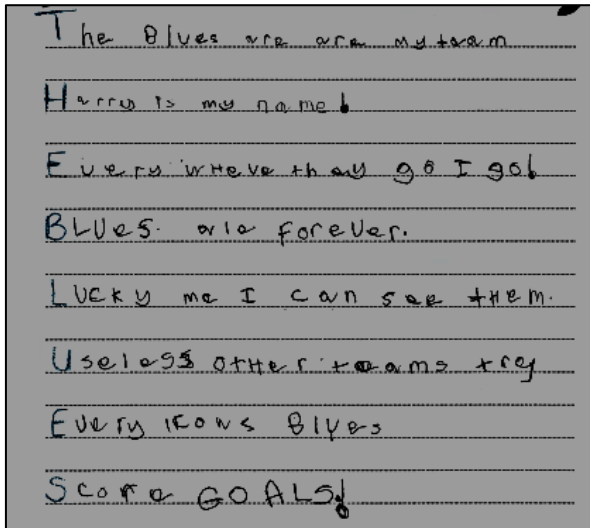 The Blues are are my team
Harry is my name!
Every where thay go I go!
BLUes. are forever.
LUcky me I can see tHem.
Useless otHer teams try
Every kows Blues
Score GOALS!